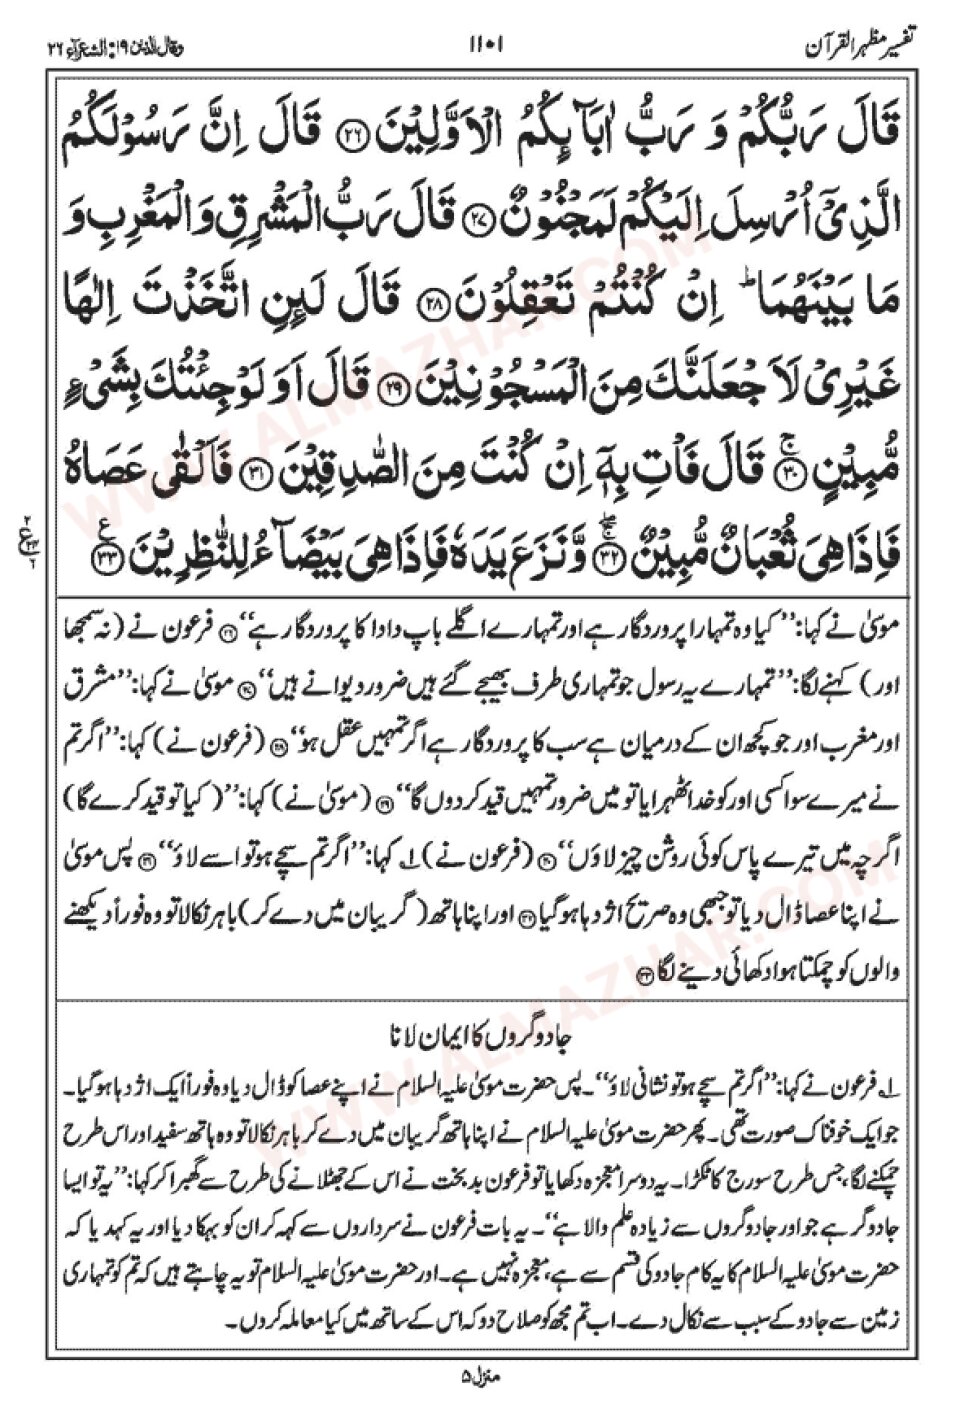 تفسیر مظہر القرآن
۱۱۰۱
وقال الذین ۱۹: الشعرآء ۲۶
قَالَ رَبُّكُمْ وَ رَبُّ اٰبَآىِٕكُمُ الْاَوَّلِیْنَ ﴿۲۶﴾ قَالَ اِنَّ رَسُوْلَكُمُ
الَّذِیْۤ اُرْسِلَ اِلَیْكُمْ لَمَجْنُوْنٌ ﴿۲۷﴾ قَالَ رَبُّ الْمَشْرِقِ وَ الْمَغْرِبِ وَ
مَا بَیْنَهُمَا ؕ اِنْ كُنْتُمْ تَعْقِلُوْنَ ﴿۲۸﴾ قَالَ لَىِٕنِ اتَّخَذْتَ اِلٰهًا
غَیْرِیْ لَاَجْعَلَنَّكَ مِنَ الْمَسْجُوْنِیْنَ ﴿۲۹﴾ قَالَ اَوَ لَوْ جِئْتُكَ بِشَیْءٍ
مُّبِیْنٍ ﴿۳۰﴾ۚ قَالَ فَاْتِ بِهٖۤ اِنْ كُنْتَ مِنَ الصّٰدِقِیْنَ ﴿۳۱﴾ فَاَلْقٰى عَصَاهُ
فَاِذَا هِیَ ثُعْبَانٌ مُّبِیْنٌ ﴿۳۲﴾ۚۖ وَّ نَزَعَ یَدَهٗ فَاِذَا هِیَ بَیْضَآءُ لِلنّٰظِرِیْنَ ﴿۳۳﴾ع
موسیٰ نے کہا: ’’کیا وہ تمہارا پروردگار ہے اور تمہارے اگلے باپ دادا کا پروردگار ہے‘‘ ﴿۲۶﴾ فرعون نے (نہ سمجھا
اور) کہنے لگا: ’’تمہارے یہ رسول جو تمہاری طرف بھیجے گئے ہیں ضرور دیوانے ہیں‘‘ ﴿۲۷﴾ موسیٰ نے کہا: ’’مشرق
اور مغرب اور جو کچھ ان کے درمیان ہے سب کا پروردگار ہے اگر تمہیں عقل ہو‘‘ ﴿۲۸﴾ (فرعون نے) کہا: ’’اگر تم
نے میرے سوا کسی اور کو خدا ٹھہرایا تو میں ضرور تمہیں قید کردوں گا‘‘ ﴿۲۹﴾ (موسیٰ نے) کہا: ’’(کیا تو قید کرے گا)
اگرچہ میں تیرے پاس کوئی روشن چیز لاؤں‘‘ ﴿۳۰﴾ (فرعون نے) ۱؎ کہا: ’’اگر تم سچے ہو تو اسے لاؤ‘‘ ﴿۳۱﴾ پس موسیٰ
نے اپنا عصا ڈال دیا تو جبھی وہ صریح اژدہا ہوگیا ﴿۳۲﴾ اور اپنا ہاتھ (گریبان میں دے کر) باہر نکالا تو وہ فوراً دیکھنے
والوں کو چمکتا ہوا دکھائی دینے لگا ﴿۳۳﴾
جادوگروں کا ایمان لانا
۱؎ فرعون نے کہا: ’’اگر تم سچے ہو تو نشانی لاؤ‘‘۔ پس حضرت موسیٰ علیہ السلام نے اپنے عصا کو ڈال دیا وہ فوراً ایک اژدہا ہوگیا۔
جو ایک خوفناک صورت تھی۔ پھر حضرت موسیٰ علیہ السلام نے اپنا ہاتھ گریبان میں دے کر باہر نکالا تو وہ ہاتھ سفید اور اس طرح
چمکنے لگا، جس طرح سورج کا ٹکڑا۔ یہ دوسرا معجزہ دکھایا تو فرعون بدبخت نے اس کے جھٹلانے کی طرح سے گھبرا کر کہا: ’’یہ تو ایسا
جادوگر ہے جو اور جادوگروں سے زیادہ علم والا ہے‘‘۔ یہ بات فرعون نے سرداروں سے کہہ کر ان کو بہکا دیا اور یہ کہہ دیا کہ
حضرت موسیٰ علیہ السلام کا یہ کام جادو کی قسم سے ہے، معجزہ نہیں ہے۔ اور حضرت موسیٰ علیہ السلام تو یہ چاہتے ہیں کہ تم کو تمہاری
زمین سے جادو کے سبب سے نکال دے۔ اب تم مجھ کو صلاح دو کہ اس کے ساتھ میں کیا معاملہ کروں۔
منزل ۵
WWW.ALMAZHAR.COM
WWW.ALMAZHAR.COM